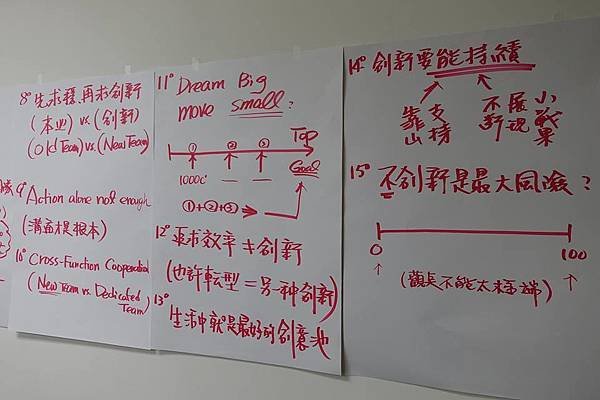 8° 先求穩,再求創新
(本业) vs (創新)
(Old Team) vs. (New Team)
9° Action alone not enough
(溝通才是根本)
10° Cross-Function Cooperation
(New Team vs. Dedicated
Team)
11° Dream Big
move small?
① ② ③ Top
1000c' Goal
①+②+③→
12° 要求效率≠創新
(也許転型=另一种創新)
13°
生活中就是最好的創意池
14° 創新要能持續
靠山 支持 不斷 展現 小戰果
15° 不創新是最大風險?
0 100
(觀点不能太極端)